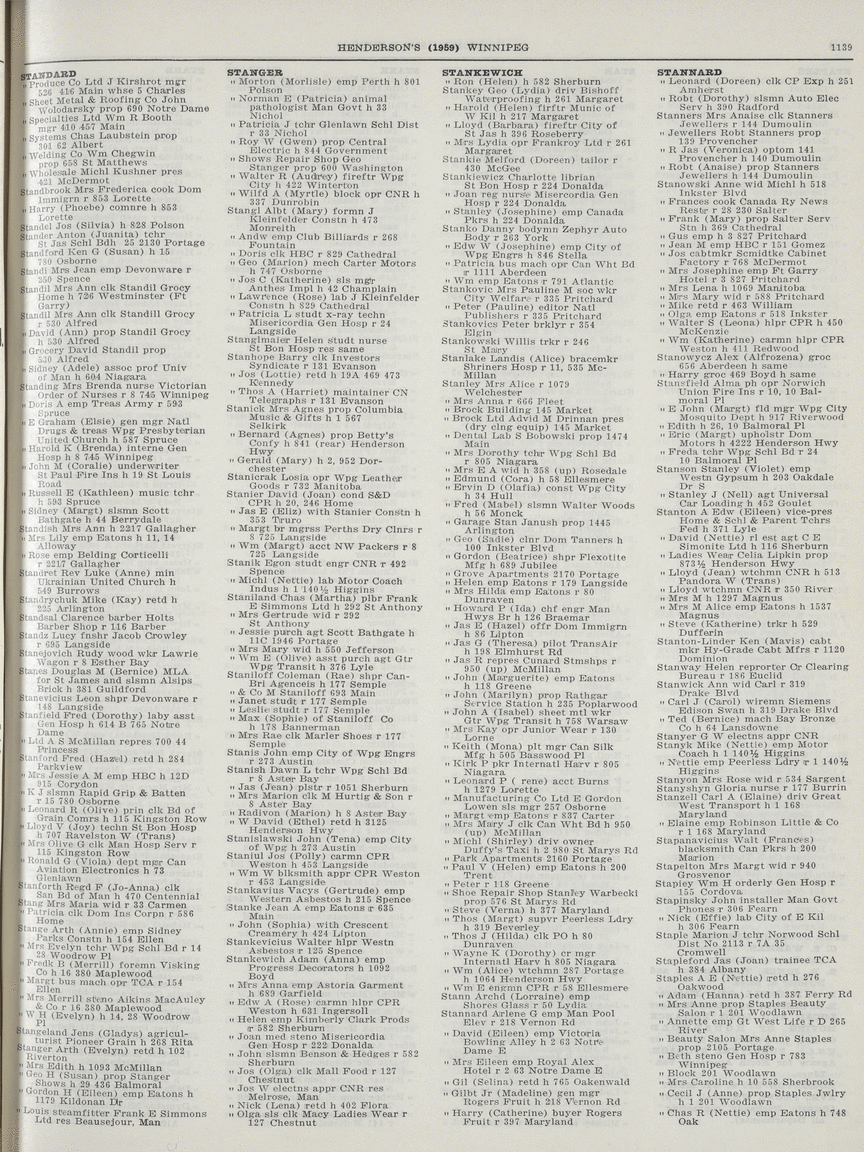 HENDERSON'S (1959) WINNIPEG
1139
STANDARD
" Produce Co Ltd J Kirshrot mgr
526 416 Main whse 5 Charles
" Sheet Metal & Roofing Co John
Wolodarsky prop 690 Notre Dame
" Specialties Ltd Wm R Booth
mgr 410 457 Main
" Systems Chas Laubstein prop
301 62 Albert
" Welding Co Wm Chegwin
prop 658 St Matthews
" Wholesale Michl Kushner pres
421 McDermot
Standbrook Mrs Frederica cook Dom
Immigrn r 853 Lorette
" Harry (Phoebe) comnre h 853
Lorette
Standel Jos (Silvia) h 828 Polson
Stander Anton (Juanita) tchr
St Jas Schl Bdh 25 2130 Portage
Standford Ken G (Susan) h 15
780 Osborne
Standi Mrs Jean emp Devonware r
250 Spence
Standil Mrs Ann clk Standil Grocy
Home h 726 Westminster (Ft
Garry)
Standil Mrs Ann clk Standill Grocy
r 530 Alfred
" David (Ann) prop Standil Grocy
h 530 Alfred
" Grocery David Standil prop
530 Alfred
" Sidney (Adele) assoc prof Univ
of Man h 604 Niagara
Standing Mrs Brenda nurse Victorian
Order of Nurses r 8 745 Winnipeg
" Doris A emp Treas Army r 593
Spruce
" E Graham (Elsie) gen mgr Natl
Drugs & treas Wpg Presbyterian
United Church h 587 Spruce
" Harold K (Brenda) interne Gen
Hosp h 8 745 Winnipeg
" John M (Coralie) underwriter
St Paul Fire Ins h 19 St Louis
Road
" Russell E (Kathleen) music tchr
h 593 Spruce
" Sidney (Margt) slsmn Scott
Bathgate h 44 Berrydale
Standish Mrs Ann h 2217 Gallagher
" Mrs Lily emp Eatons h 11, 14
Alloway
" Rose emp Belding Corticelli
r 2217 Gallagher
Standret Rev Luke (Anne) min
Ukranian United Church h
549 Burrows
Standrychuk Mike (Kay) retd h
225 Arlington
Standsal Clarence barber Holts
Barber Shop r 116 Barber
Standz Lucy fnshr Jacob Crowley
r 695 Langside
Stanejovich Rudy wood wkr Lawrie
Wagon r 8 Esther Bay
Stanes Douglas M (Bernice) MLA
for St James and slsmn Alsips
Brick h 381 Guildford
Stanevicius Leon shpr Devonware r
148 Langside
Stanfield Fred (Dorothy) laby asst
Gen Hosp h 614 B 765 Notre
Dame
" Ltd A S McMillan repres 700 44
Princess
Stanford Fred (Hazel) retd h 284
Parkview
" Mrs Jessie A M emp HBC h 12D
915 Corydon
" K J slsmn Rapid Grip & Batten
r 15 780 Osborne
" Leonard R (Olive) prin clk Bd of
Grain Comrs h 115 Kingston Row
" Lloyd V (Joy) techn St Bon Hosp
h 707 Ravelston W (Trans)
" Mrs Olive G clk Man Hosp Serv r
115 Kingston Row
" Ronald G (Viola) dept mgr Can
Aviation Electronics h 73
Glenlawn
Stanforth Regd F (Jo-Anna) clk
San Bd of Man h 470 Centennial
Stang Mrs Maria wid r 33 Carmen
" Patricia clk Dom Ins Corpn r 586
Home
Stange Arth (Annie) emp Sidney
Parks Constn h 154 Ellen
" Mrs Evelyn tchr Wpg Schl Bd r 14
28 Woodrow Pl
" Fredk B (Merrill) foremn Visking
Co h 16 380 Maplewood
" Margt bus mach opr TCA r 154
Ellen
" Mrs Merrill steno Aikins MacAuley
& Co r 16 380 Maplewood
" W H (Evelyn) h 14, 28 Woodrow
Pl
Stangeland Jens (Gladys) agricul-
turist Pioneer Grain h 268 Rita
Stanger Arth (Evelyn) retd h 102
Riverton
" Mrs Edith h 1093 McMillan
" Geo H (Susan) prop Stanger
Shows h 29 436 Balmoral
" Gordon H (Eileen) emp Eatons h
1179 Kildonan Dr
" Louis steamfitter Frank E Simmons
Ltd res Beausejour, Man
STANGER
" Morton (Morlisle) emp Perth h 801
Polson
" Norman E (Patricia) animal
pathologist Man Govt h 33
Nichol
" Patricia J tchr Glenlawn Schl Dist
r 33 Nichol
" Roy W (Gwen) prop Central
Electric h 844 Government
" Shows Repair Shop Geo
Stanger prop 600 Washington
" Walter R (Audrey) fireftr Wpg
City h 422 Winterton
" Wilfd A (Myrtle) block opr CNR h
337 Dunrobin
Stangl Albt (Mary) formn J
Kleinfelder Constn h 473
Monreith
" Andw emp Club Billiards r 268
Fountain
" Doris clk HBC r 829 Cathedral
" Geo (Marion) mech Carter Motors
h 747 Osborne
" Jos C (Katherine) sls mgr
Anthes Impl h 42 Champlain
" Lawrence (Rose) lab J Kleinfelder
Constn h 829 Cathedral
" Patricia L studt x-ray techn
Misericordia Gen Hosp r 24
Langside
Stanglmaier Helen studt nurse
St Bon Hosp res same
Stanhope Barry clk Investors
Syndicate r 131 Evanson
" Jos (Lottie) retd h 19A 469 473
Kennedy
" Thos A (Harriet) maintainer CN
Telegraphs r 131 Evanson
Stanick Mrs Agnes prop Columbia
Music & Gifts h 1 567
Selkirk
" Bernard (Agnes) prop Betty's
Confy h 841 (rear) Henderson
Hwy
" Gerald (Mary) h 2, 952 Dor-
chester
Stanicrak Losia opr Wpg Leather
Goods r 732 Manitoba
Stanier David (Joan) cond S&D
CPR h 20, 246 Home
" Jas E (Eliz) with Stanier Constn h
353 Truro
" Margt br mgrss Perths Dry Clnrs r
8 725 Langside
" Wm (Margt) acct NW Packers r 8
725 Langside
Stanik Egon studt engr CNR r 492
Spence
" Michl (Nettie) lab Motor Coach
Indus h 1 140½ Higgins
Staniland Chas (Martha) plbr Frank
E Simmons Ltd h 292 St Anthony
" Mrs Gertrude wid r 292
St Anthony
" Jessie purch agt Scott Bathgate h
11C 1946 Portage
" Mrs Mary wid h 550 Jefferson
" Wm E (Olive) asst purch agt Gtr
Wpg Transit h 376 Lyle
Staniloff Coleman (Rae) shpr Can-
Bri Agenceis h 177 Semple
" & Co M Staniloff 693 Main
" Janet studt r 177 Semple
" Leslie studt r 177 Semple
" Max (Sophie) of Staniloff Co
h 178 Bannerman
" Mrs Rae clk Marler Shoes r 177
Semple
Stanis John emp City of Wpg Engrs
r 273 Austin
Stanish Dawn L tchr Wpg Schl Bd
r 8 Aster Bay
" Jas (Jean) plstr r 1051 Sherburn
" Mrs Marion clk M Hurtig & Son r
8 Aster Bay
" Radivon (Marion) h 8 Aster Bay
" W David (Ethel) retd h 3125
Henderson Hwy
Stanislawski John (Tena) emp City
of Wpg h 273 Austin
Staniul Jos (Polly) carmn CPR
Weston h 453 Langside
" Wm W blksmith appr CPR Weston
r 453 Langside
Stankavitis Vacys (Gertrude) emp
Western Asbestos h 215 Spence
Stanke Jean A emp Eatons r 635
Main
" John (Sophia) with Crescent
Creamery h 424 Lipton
Stankevicius Walter hlpr Westn
Asbestos r 125 Spence
Stankewich Adam (Anna) emp
Progress Decorators h 1092
Boyd
" Mrs Anna emp Astoria Garment
h 689 Garfield
" Edw A (Rose) carmn hlpr CPR
Weston h 631 Ingersoll
" Helen emp Kimberly Clark Prods
r 582 Sherburn
" Joan med steno Misericordia
Gen Hosp r 222 Donalda
" John slsmn Benson & Hedges r 582
Sherburn
" Jos (Olga) clk Mall Food r 127
Chestnut
" Jos W electns appr CNR res
Melrose, Man
" Nick (Lena) retd h 402 Flora
" Olga sls clk Macy Ladies Wear r
127 Chestnut
STANKEWICH
" Ron (Helen) h 582 Sherburn
Stankey Geo (Lydia) driv Bishoff
Waterproofing h 261 Margaret
" Harold (Helen) fireftr Munic of
W Kil h 217 Margaret
" Lloyd (Barbara) fireftr City of
St Jas h 396 Roseberry
" Mrs Lydia opr Frankroy Ltd r 261
Margaret
Stankie Melford (Doreen) tailor r
430 McGee
Stankiewicz Charlotte librian
St Bon Hosp r 224 Donalda
" Joan reg nurse Misericordia Gen
Hosp r 224 Donalda
" Stanley (Josephine) emp Canada
Pkrs h 224 Donalda
Stanko Danny bodymn Zephyr Auto
Body r 263 York
" Edw W (Josephine) emp City of
Wpg Engrs h 846 Stella
" Patricia bus mach opr Can Wht Bd
r 1111 Aberdeen
" Wm emp Eatons r 791 Atlantic
Stankovic Mrs Pauline M soc wkr
City Welfare r 335 Pritchard
" Peter (Pauline) editor Natl
Publishers r 335 Pritchard
Stankovics Peter brklyr r 354
Elgin
Stankowski Willis trkr r 246
St Mary
Stanlake Landis (Alice) bracemkr
Shriners Hosp r 11, 535 Mc-
Millan
Stanley Mrs Alice r 1079
Welchester
" Mrs Anna r 666 Fleet
" Brock Building 145 Market
" Brock Ltd Advid M Drinnan pres
(dry clng equip) 145 Market
" Dental Lab S Bobowski prop 1474
Main
" Mrs Dorothy tchr Wpg Schl Bd
r 805 Niagara
" Mrs E A wid h 358 (up) Rosedale
" Edmund (Cora) h 58 Ellesmere
" Ervin D (Olafia) const Wpg City
h 34 Hull
" Fred (Mabel) slsmn Walter Woods
h 56 Monck
" Garage Stan Janush prop 1445
Arlington
" Geo (Sadie) clnr Dom Tanners h
100 Inkster Blvd
" Gordon (Beatrice) shpr Flexotite
Mfg h 689 Jubilee
" Grove Apartments 2170 Portage
" Helen emp Eatons r 179 Langside
" Mrs Hilda emp Eatons r 80
Dunraven
" Howard P (Ida) chf engr Man
Hwys Br h 126 Braemar
" Jas E (Hazel) offr Dom Immigrn
h 86 Lipton
" Jas G (Theresa) pilot TransAir
h 198 Elmhurst Rd
" Jas R repres Cunard Stmshps r
950 (up) McMillan
" John (Marguerite) emp Eatons
h 118 Greene
" John (Marilyn) prop Rathgar
Service Station h 235 Poplarwood
" John A (Isabel) sheet mtl wkr
Gtr Wpg Transit h 758 Warsaw
" Mrs Kay opr Junior Wear r 130
Lorne
" Keith (Mona) plt mgr Can Silk
Mfg h 505 Basswood Pl
" Kirk P pkr Internatl Harv r 805
Niagara
" Leonard P ( rene) acct Burns
h 1279 Lorette
" Manufacturing Co Ltd E Gordon
Lowen sls mgr 257 Osborne
" Margt emp Eatons r 837 Carter
" Mrs Mary J clk Can Wht Bd h 950
(up) McMillan
" Michl (Shirley) driv owner
Duffy's Taxi h 2 980 St Marys Rd
" Park Apartments 2160 Portage
" Paul V (Helen) emp Eatons h 200
Trent
" Peter r 118 Greene
" Shoe Repair Shop Stanley Warbecki
prop 576 St Marys Rd
" Steve (Verna) h 377 Maryland
" Thos (Margt) supvr Peerless Ldry
h 319 Beverley
" Thos J (Hilda) clk PO h 80
Dunraven
" Wayne K (Dorothy) cr mgr
Internatl Harv h 805 Niagara
" Wm (Alice) wtchmn 287 Portage
h 1064 Henderson Hwy
" Wm E engmn CPR r 58 Ellesmere
Stann Archd (Lorraine) emp
Shores Glass r 50 Lydia
Stannard Arlene G emp Man Pool
Elev r 218 Vernon Rd
" David (Eileen) emp Victoria
Bowling Alley h 2 63 Notre
Dame E
" Mrs Eileen emp Royal Alex
Hotel r 2 63 Notre Dame E
" Gil (Selina) retd h 765 Oakenwald
" Gilbt Jr (Madeline) gen mgr
Rogers Fruit h 218 Vernon Rd
" Harry (Catherine) buyer Rogers
Fruit r 397 Maryland
STANNARD
" Leonard (Doreen) clk CP Exp h 251
Amherst
" Robt (Dorothy) slsmn Auto Elec
Serv h 390 Radford
Stanners Mrs Anaise clk Stanners
Jewellers r 144 Dumoulin
" Jewellers Robt Stanners prop
139 Provencher
" R Jas (Veronica) optom 141
Provencher h 140 Dumoulin
" Robt (Anaise) prop Stanners
Jewellers h 144 Dumoulin
Stanowski Anne wid Michl h 518
Inkster Blvd
" Frances cook Canada Ry News
Restr r 28 230 Salter
" Frank (Mary) prop Salter Serv
Stn h 369 Cathedral
" Gus emp h 3 827 Pritchard
" Jean M emp HBC r 151 Gomez
" Jos cabtmkr Scmidtke Cabinet
Factory r 768 McDermot
" Mrs Josephine emp Ft Garry
Hotel r 3 827 Pritchard
" Mrs Lena h 1069 Manitoba
" Mrs Mary wid r 588 Pritchard
" Mike retd r 463 William
" Olga emp Eatons r 518 Inkster
" Walter S (Leona) hlpr CPR h 450
McKenzie
" Wm (Katherine) carmn hlpr CPR
Weston h 411 Redwood
Stanowycz Alex (Alfrozena) groc
656 Aberdeen h same
" Harry groc 469 Boyd h same
Stansfield Alma ph opr Norwich
Union Fire Ins r 10, 10 Bal-
moral Pl
" E John (Margt) fld mgr Wpg City
Mosquito Dept h 917 Riverwood
" Edith h 26, 10 Balmoral Pl
" Eric (Margt) upholstr Dom
Motors h 4222 Henderson Hwy
" Freda tchr Wpg Schl Bd r 24
10 Balmoral Pl
Stanson Stanley (Violet) emp
Westn Gypsum h 203 Oakdale
Dr S
" Stanley J (Nell) agt Universal
Car Loading h 452 Goulet
Stanton A Edw (Eileen) vice-pres
Home & Schl & Parent Tchrs
Fed h 371 Lyle
" David (Nettie) rl est agt C E
Simonite Ltd h 116 Sherburn
" Ladies Wear Celia Lipkin prop
873½ Henderson Hwy
" Lloyd (Jean) wtchmn CNR h 513
Pandora W (Trans)
" Lloyd wtchmn CNR r 350 River
" Mrs M h 1297 Magnus
" Mrs M Alice emp Eatons h 1537
Magnus
" Steve (Katherine) trkr h 529
Dufferin
Stanton-Linder Ken (Mavis) cabt
mkr Hy-Grade Cabt Mfrs r 1120
Dominion
Stanway Helen reprorter Cr Clearing
Bureau r 186 Euclid
Stanwick Ann wid Carl r 319
Drake Blvd
" Carl J (Carol) wiremn Siemens
Edison Swan h 319 Drake Blvd
" Ted (Bernice) mach Bay Bronze
Co h 64 Lansdowne
Stanyer G W electns appr CNR
Stanyk Mike (Nettie) emp Motor
Coach h 1 140½ Higgins
" Nettie emp Peerless Ldry r 1 140½
Higgins
Stanyon Mrs Rose wid r 534 Sargent
Stanyshyn Gloria nurse r 177 Burrin
Stanzell Carl A (Elaine) driv Great
West Transport h 1 168
Maryland
" Elaine emp Robinson Little & Co
r 1 168 Maryland
Stapanavicius Walt (Frances)
blacksmith Can Pkrs h 200
Marion
Stapelton Mrs Margt wid r 940
Grosvenor
Stapley Wm H orderly Gen Hosp r
155 Cordova
Stapinsky John installer Man Govt
Phones r 306 Fearn
" Nick (Effie) lab City of E Kil
h 306 Fearn
Staple Marion J tchr Norwood Schl
Dist No 2113 r 7A 35
Cromwell
Stapleford Jas (Joan) trainee TCA
h 384 Albany
Staples A E (Nettie) retd h 276
Oakwood
" Adam (Hanna) retd h 387 Ferry Rd
" Mrs Anne prop Staples Beauty
Salon r 1 201 Woodlawn
" Annette emp Gt West Life r D 265
River
" Beauty Salon Mrs Anne Staples
prop 2105 Portage
" Beth steno Gen Hosp r 783
Winnipeg
" Block 201 Woodlawn
" Mrs Caroline h 10 558 Sherbrook
" Cecil J (Anne) prop Staples Jwlry
h 1 201 Woodlawn
" Chas R (Nettie) emp Eatons h 748
Oak